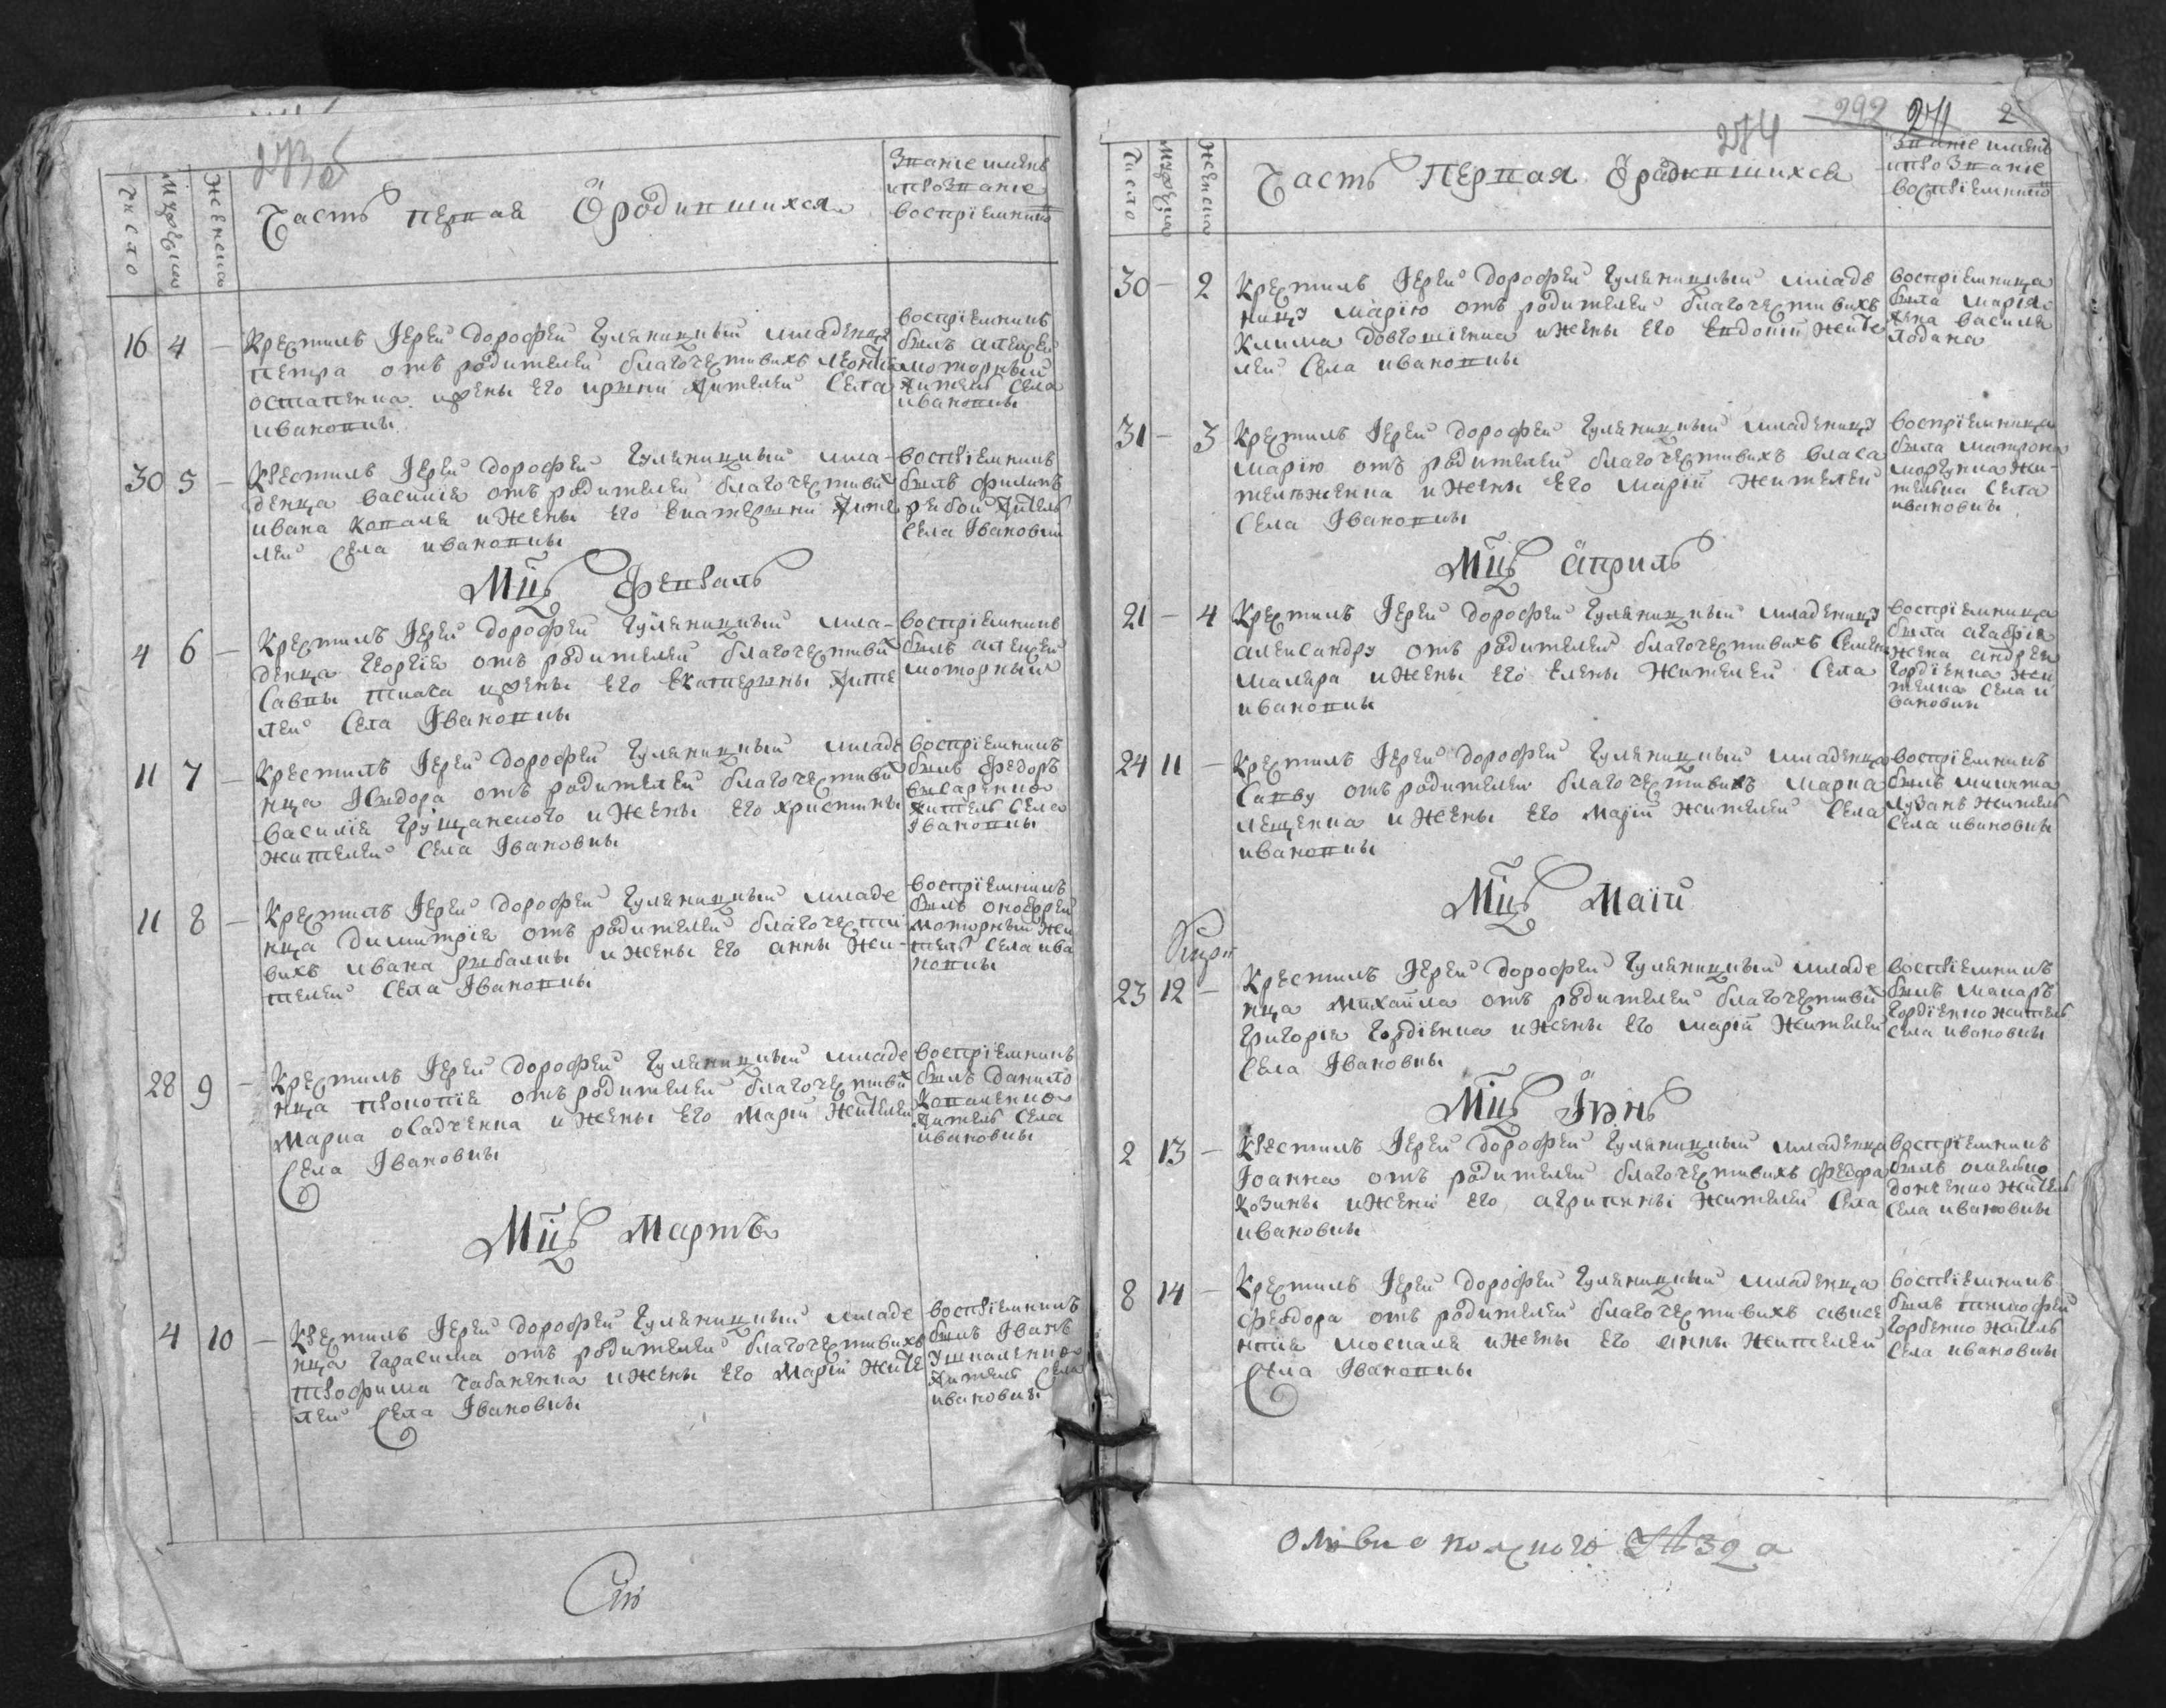 Число
Мужеска
Женска
Часть первая О родившихся
Званіе имень
и прозваніе
воспріемників
16 4 — Крестилъ Іерей Дорофей Гуляницкий младенца
Петра отъ родителей благочестивихъ Леонтія
Остапенка и жены его Ирини жителей Села
Ивановцы
воспріемникъ
былъ Алексей
Моторный
житель Села
Ивановцы
30 5 — Крестилъ Іерей Дорофей Гуляницкий мла-
денца Василія отъ родителей благочестивих
Ивана Коваля и жены его Екатерини жите
лей Села Ивановцы
воспріемникъ
былъ Филипъ
Рибой житель
Села Івановци
Мцъ Февраль
4 6 — Крестилъ Іерей Дорофей Гуляницкий мла-
денца Георгія отъ родителей благочестивих
Саввы Ткача и жены его Екатерины жите
лей Села Івановцы
воспріемникъ
былъ Алексей
Моторный
11 7 — Крестилъ Іерей Дорофей Гуляницкий младе
нца Ісидора отъ родителей благочестивих
Василія Грущанского и жены его Христины
жителей Села Івановцы
воспріемникъ
былъ Федоръ
житель Села
Івановцы
11 8 — Крестилъ Іерей Дорофей Гуляницкий младе
нца Димитрія отъ родителей благочести
вихъ Ивана Рыбалки и жены его Анны жи-
телей Села Івановцы
воспріемникъ
былъ Онофрей
Моторный жи
тель Села Ива
новцы
28 9 — Крестилъ Іерей Дорофей Гуляницкий младе
нца Прокопія отъ родителей благочестивих
Марка Осадченка и жены его Маріи жителей
Села Івановцы
воспріемникъ
былъ Данило
Коваленко
житель Села
Ивановцы
Мцъ Мартъ
4 10 — Крестилъ Іерей Дорофей Гуляницкий младе
нца Гарасима отъ родителей благочестивихъ
Трофима Чабаненка и жены его Маріи жите
лей Села Івановцы
воспріемникъ
былъ Іванъ
Ушкаленко
житель Села
Ивановцы
274 292 271 2
Число
Мужеска
Женска
Часть Первая О родившихся
Званіе имень
и прозваніе
воспріемників
30 — 2 Крестилъ Іерей Дорофей Гуляницкий младе
ницу Марію отъ родителей благочестивихъ
Клима Довгошиенка и жены его Евдокіи жите
лей Села Ивановцы
воспріемница
была Марія
жена Василя
Лодана
31 — 3 Крестилъ Іерей Дорофей Гуляницкий младеницу
Марію отъ родителей благочестивихъ Власа
и жены Его Маріи жителей
Села Івановцы
воспріемница
была Матрона
жи-
телька Села
Ивановцы
Мцъ Априль
21 — 4 Крестилъ Іерей Дорофей Гуляницкий младеницу
Александру отъ родителей благочестивихъ Семена
Маляра и жены его Елены жителей Села
Ивановцы
воспріемница
была Агафія
жена Андрея
Гордіенка жи
телка Села И
вановци
24 11 — Крестилъ Іерей Дорофей Гуляницкий младенца
Савву отъ родителей благочестивихъ Марка
Лещенка и жены его Маріи жителей Села
Ивановцы
воспріемникъ
былъ Микита
Лузанъ житель
Села Ивановцы
Мцъ Маій
23 12 — Крестилъ Іерей Дорофей Гуляницкий младе
нца Михаила отъ родителей благочестивих
Григорія Гордіенка и жены его Маріи жителей
Села Івановцы
воспріемникъ
былъ Макаръ
Гордіенко житель
Села Ивановцы
Мцъ Іюнь
2 13 — Крестилъ Іерей Дорофей Гуляницкий младенца
Іоанна отъ родителей благочестивихъ Федора
Козины и жени его Агрипины жителей Села
Ивановцы
воспріемникъ
былъ Омелько
Донченко житель
Села Ивановцы
8 14 — Крестилъ Іерей Дорофей Гуляницкий младенца
Феодора отъ родителей благочестивихъ Авксе
нтія Москаля и жены его Анны жителей
Села Івановцы
воспріемникъ
былъ Тимофей
Горбенко житель
Села Ивановцы